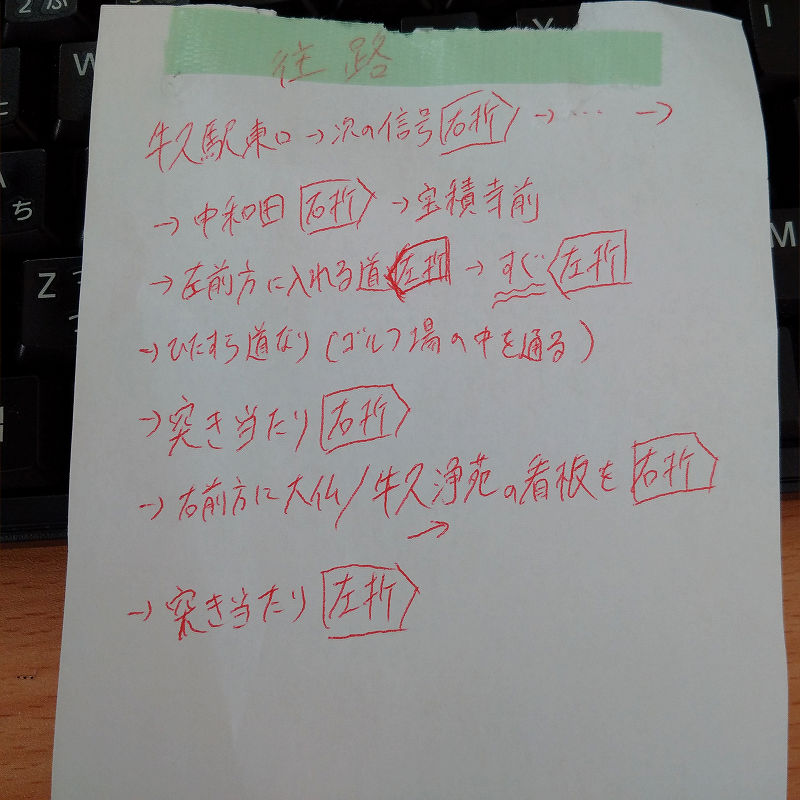 往路
牛久駅東口→次の信号 右折 →…→
→中和田 右折 →宝積寺前
→左前方に入れる道 左折 →すぐ 左折
→ひたすら道なり(ゴルフ場の中を通る)
→突き当たり 右折
→右前方に大仏/牛久浄苑の看板を 右折
→
→突き当たり 左折
W
Z
M
I
Y
ち